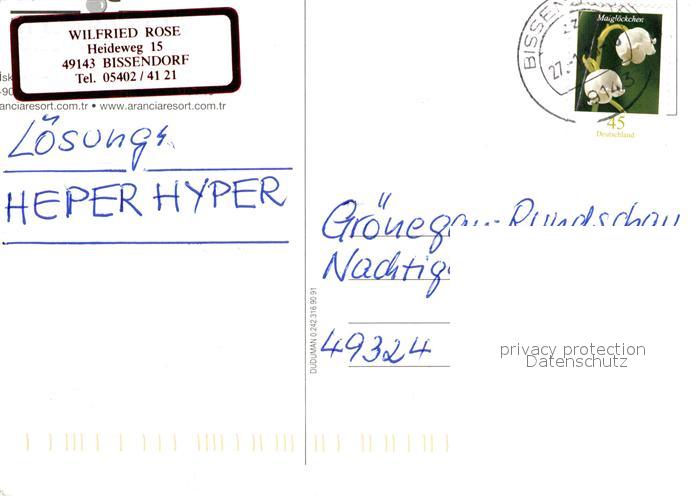 WILFRIED ROSE
Heideweg 15
49143 BISSENDORF
Tel. 05402 / 41 21
aranciaresort.com.tr • www.aranciaresort.com.tr
Lösung:
HEPER HYPER
BISSEN
27.
Maiglöckchen
45
Deutschland
Rundschau
49324
DUDUMAN 0 242 316 90 91
privacy protection
Datenschutz